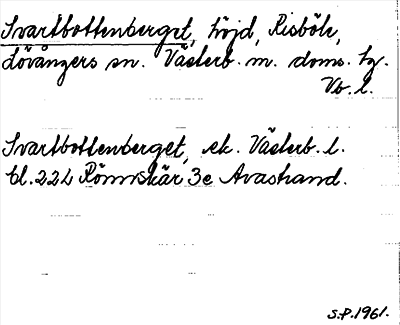 Svartbottenberget, höjd, Risböle,
Lövångers sn. Västerb. m. doms. tg.
Vb. l.
Svartbottenberget, ek. Västerb. l.
bl. 22L Rönnskär 3e Avastrand.
S.P. 1961.